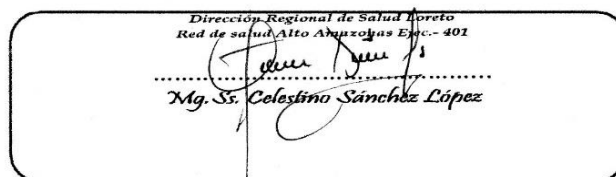 Dirección Regional de Salud Loreto
Red de salud Alto Amazonas Ejec.- 401
Mg. Ss. Celestino Sánchez López